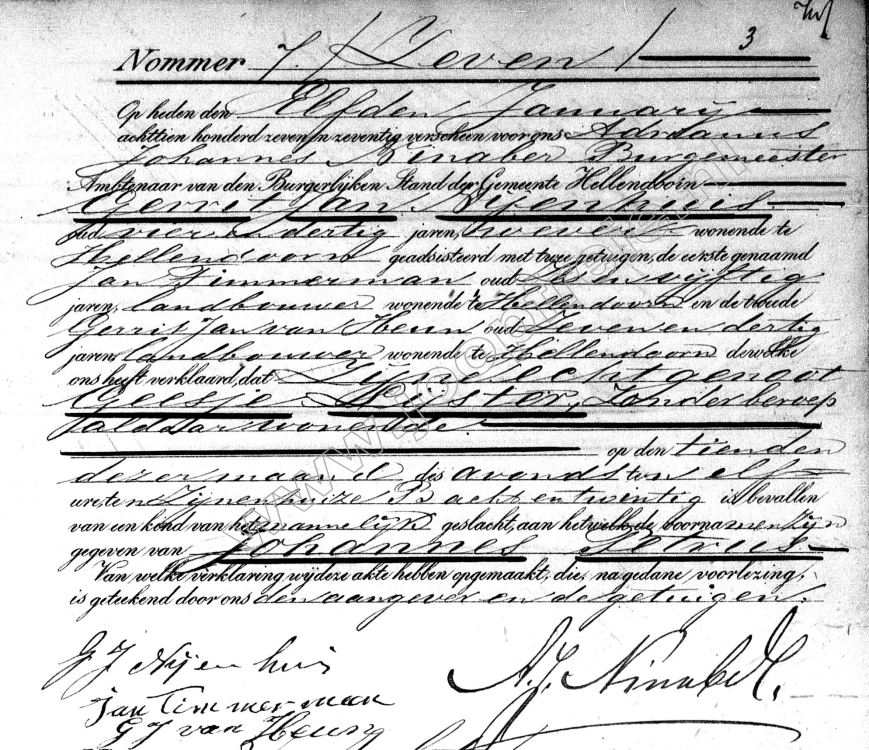 Nommer 7. (Zeven) 3
Op heden den Elfden Januarij
achttien honderd zeven en zeventig verscheen voor ons Adrianus
Johannes Ninaber Burgemeester
Ambtenaar van den Burgerlijken Stand der Gemeente Hellendoorn
Gerrit Jan Nijenhuis
oud vier en dertig jaren, wever wonende te
Hellendoorn geadsisteerd met twee getuigen, de eerste genaamd
Jan Timmerman oud en vijftig
jaren, landbouwer wonende te Hellendoorn en de tweede
Gerrit Jan van Heun oud Zeven en dertig
jaren landbouwer wonende te Hellendoorn dewelke
ons heeft verklaard, dat Zijne Echtgenoot
Geesje Zonder beroep
aldaar wonende
op den tienden
dezer maand des avonds ten elf
ure, ten Zijnen huize B acht en twentig is bevallen
van een kind van het mannelijk geslacht, aan hetwelk de voornamen zijn
gegeven van Johannes Petrus
Van welke verklaring wij deze akte hebben opgemaakt, die, na gedane voorlezing,
is geteekend door ons den aangever en de getuigen.
G J Nijenhuis
A. J. Ninaber.
Jan Timmerman
G J van Heun